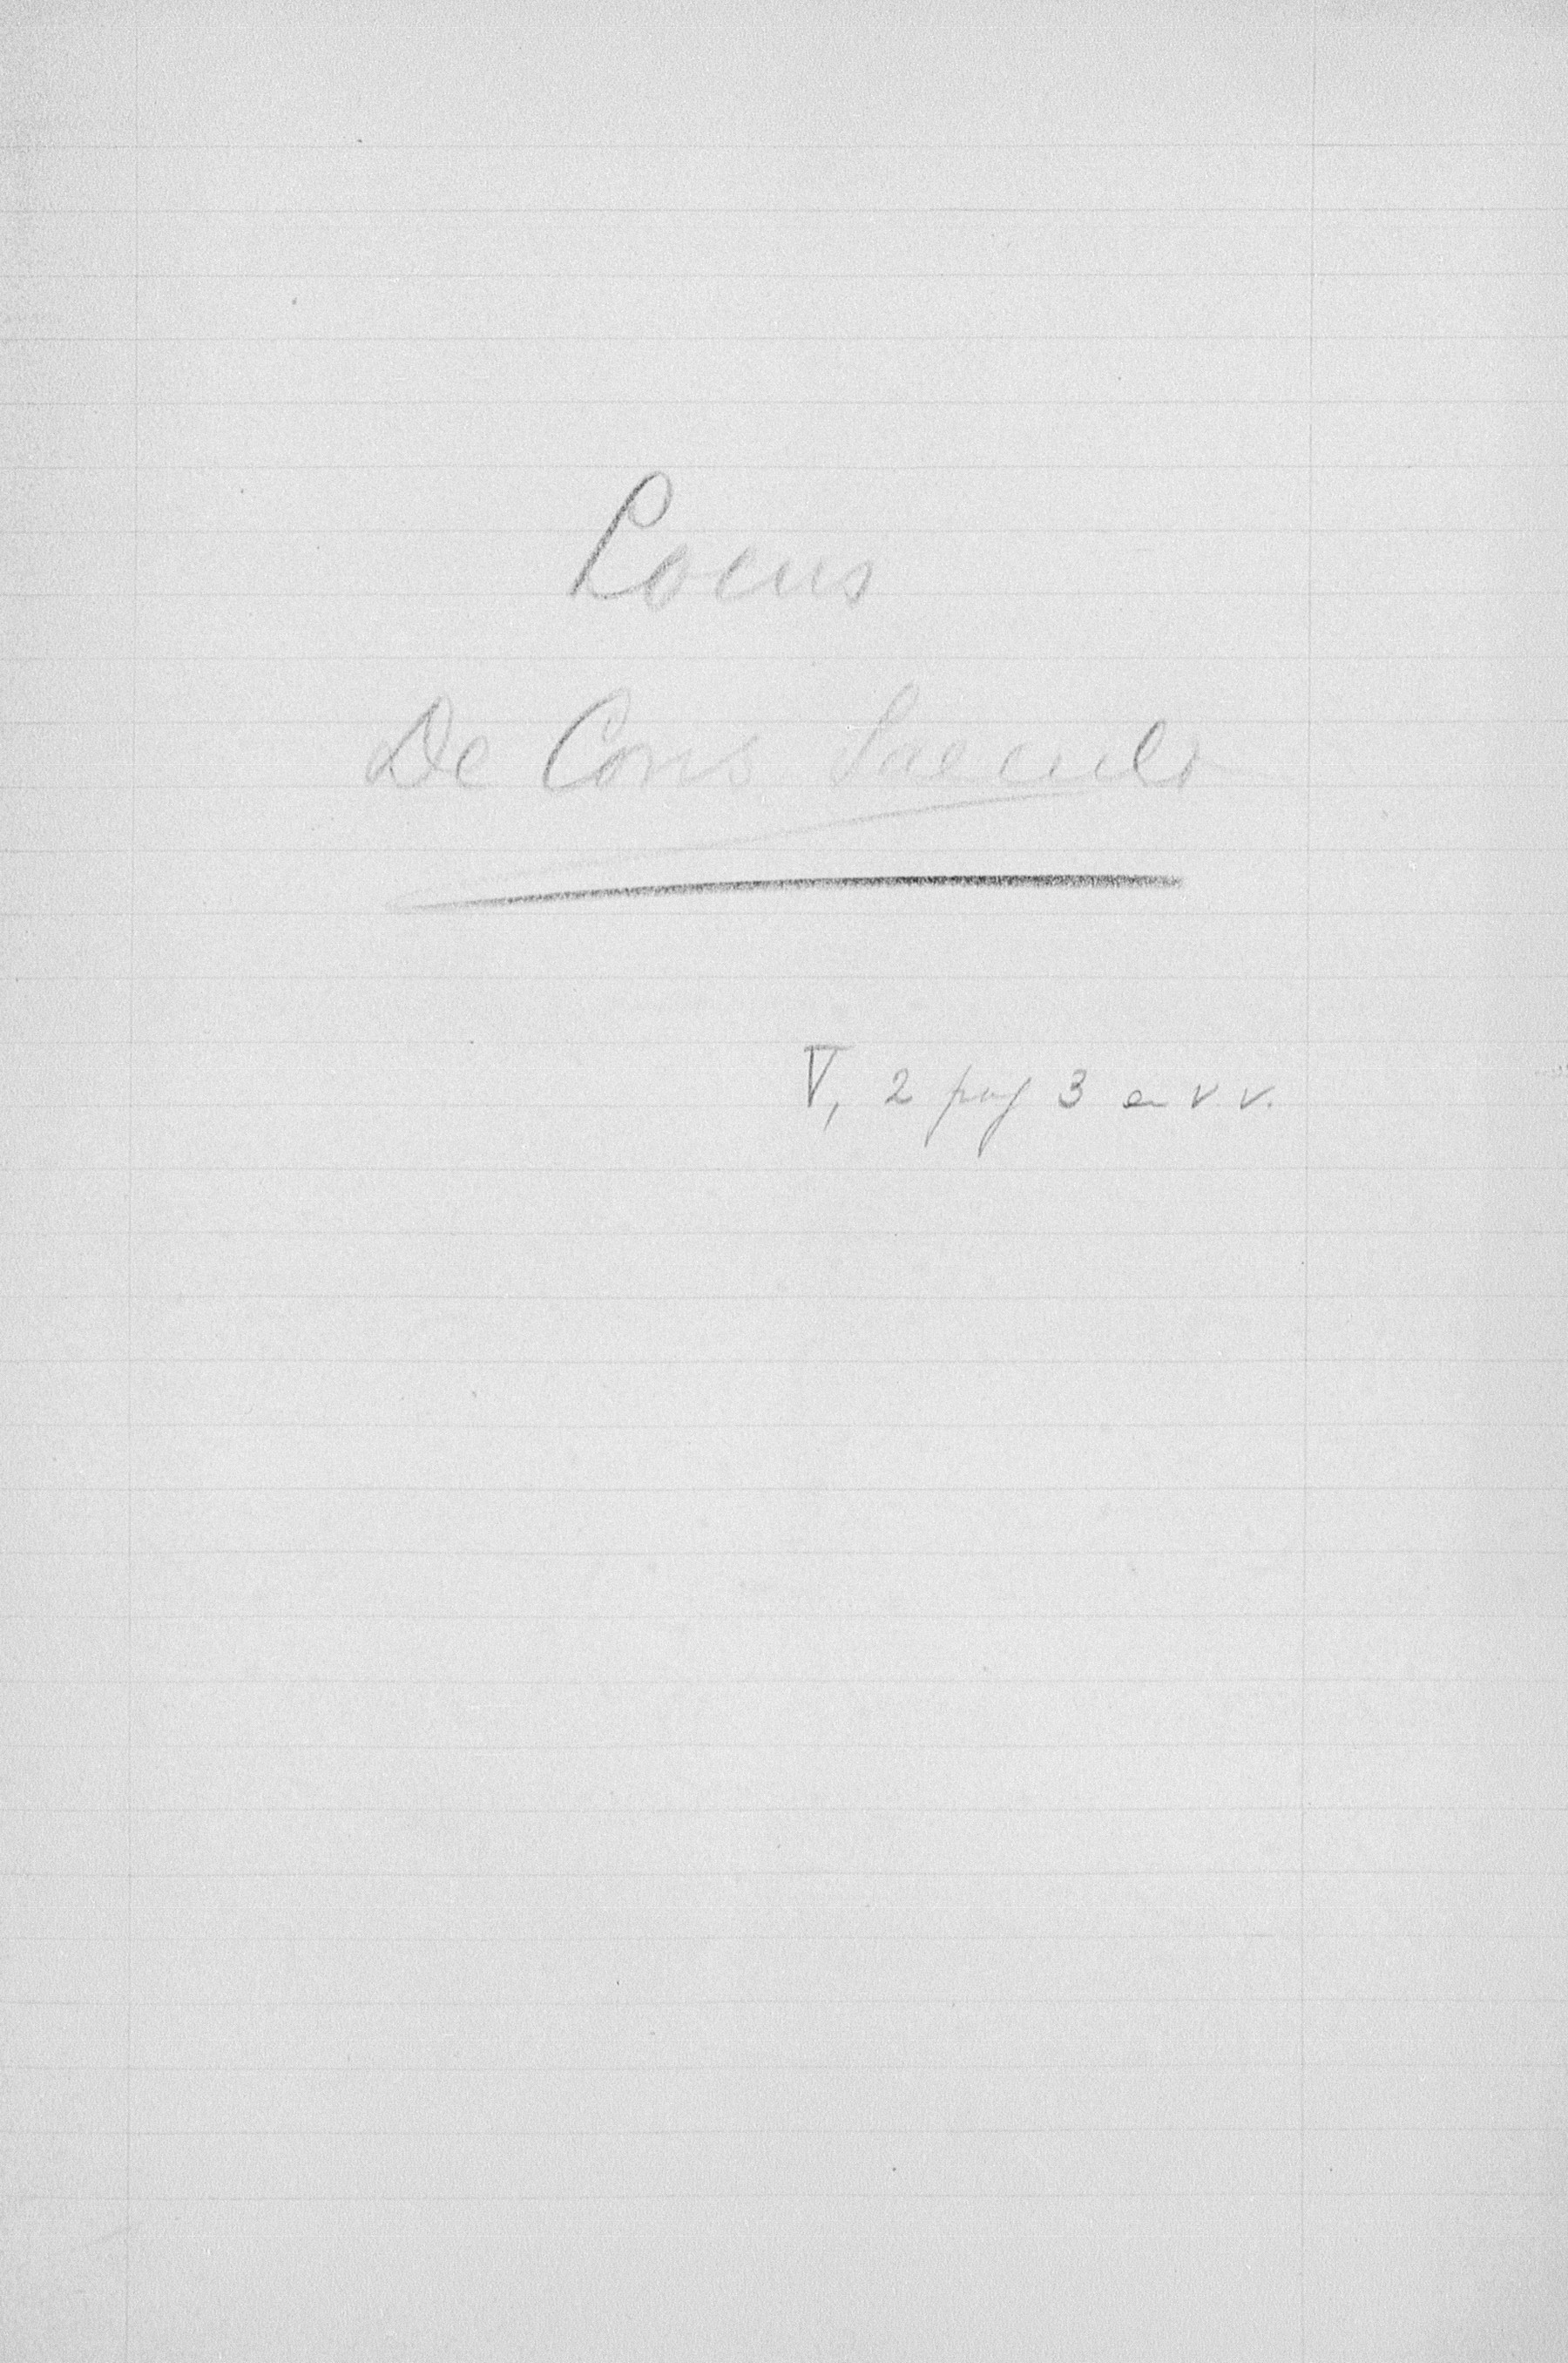 Locus
De Cons Saeculi
V, 2 pag 3 en v.v.